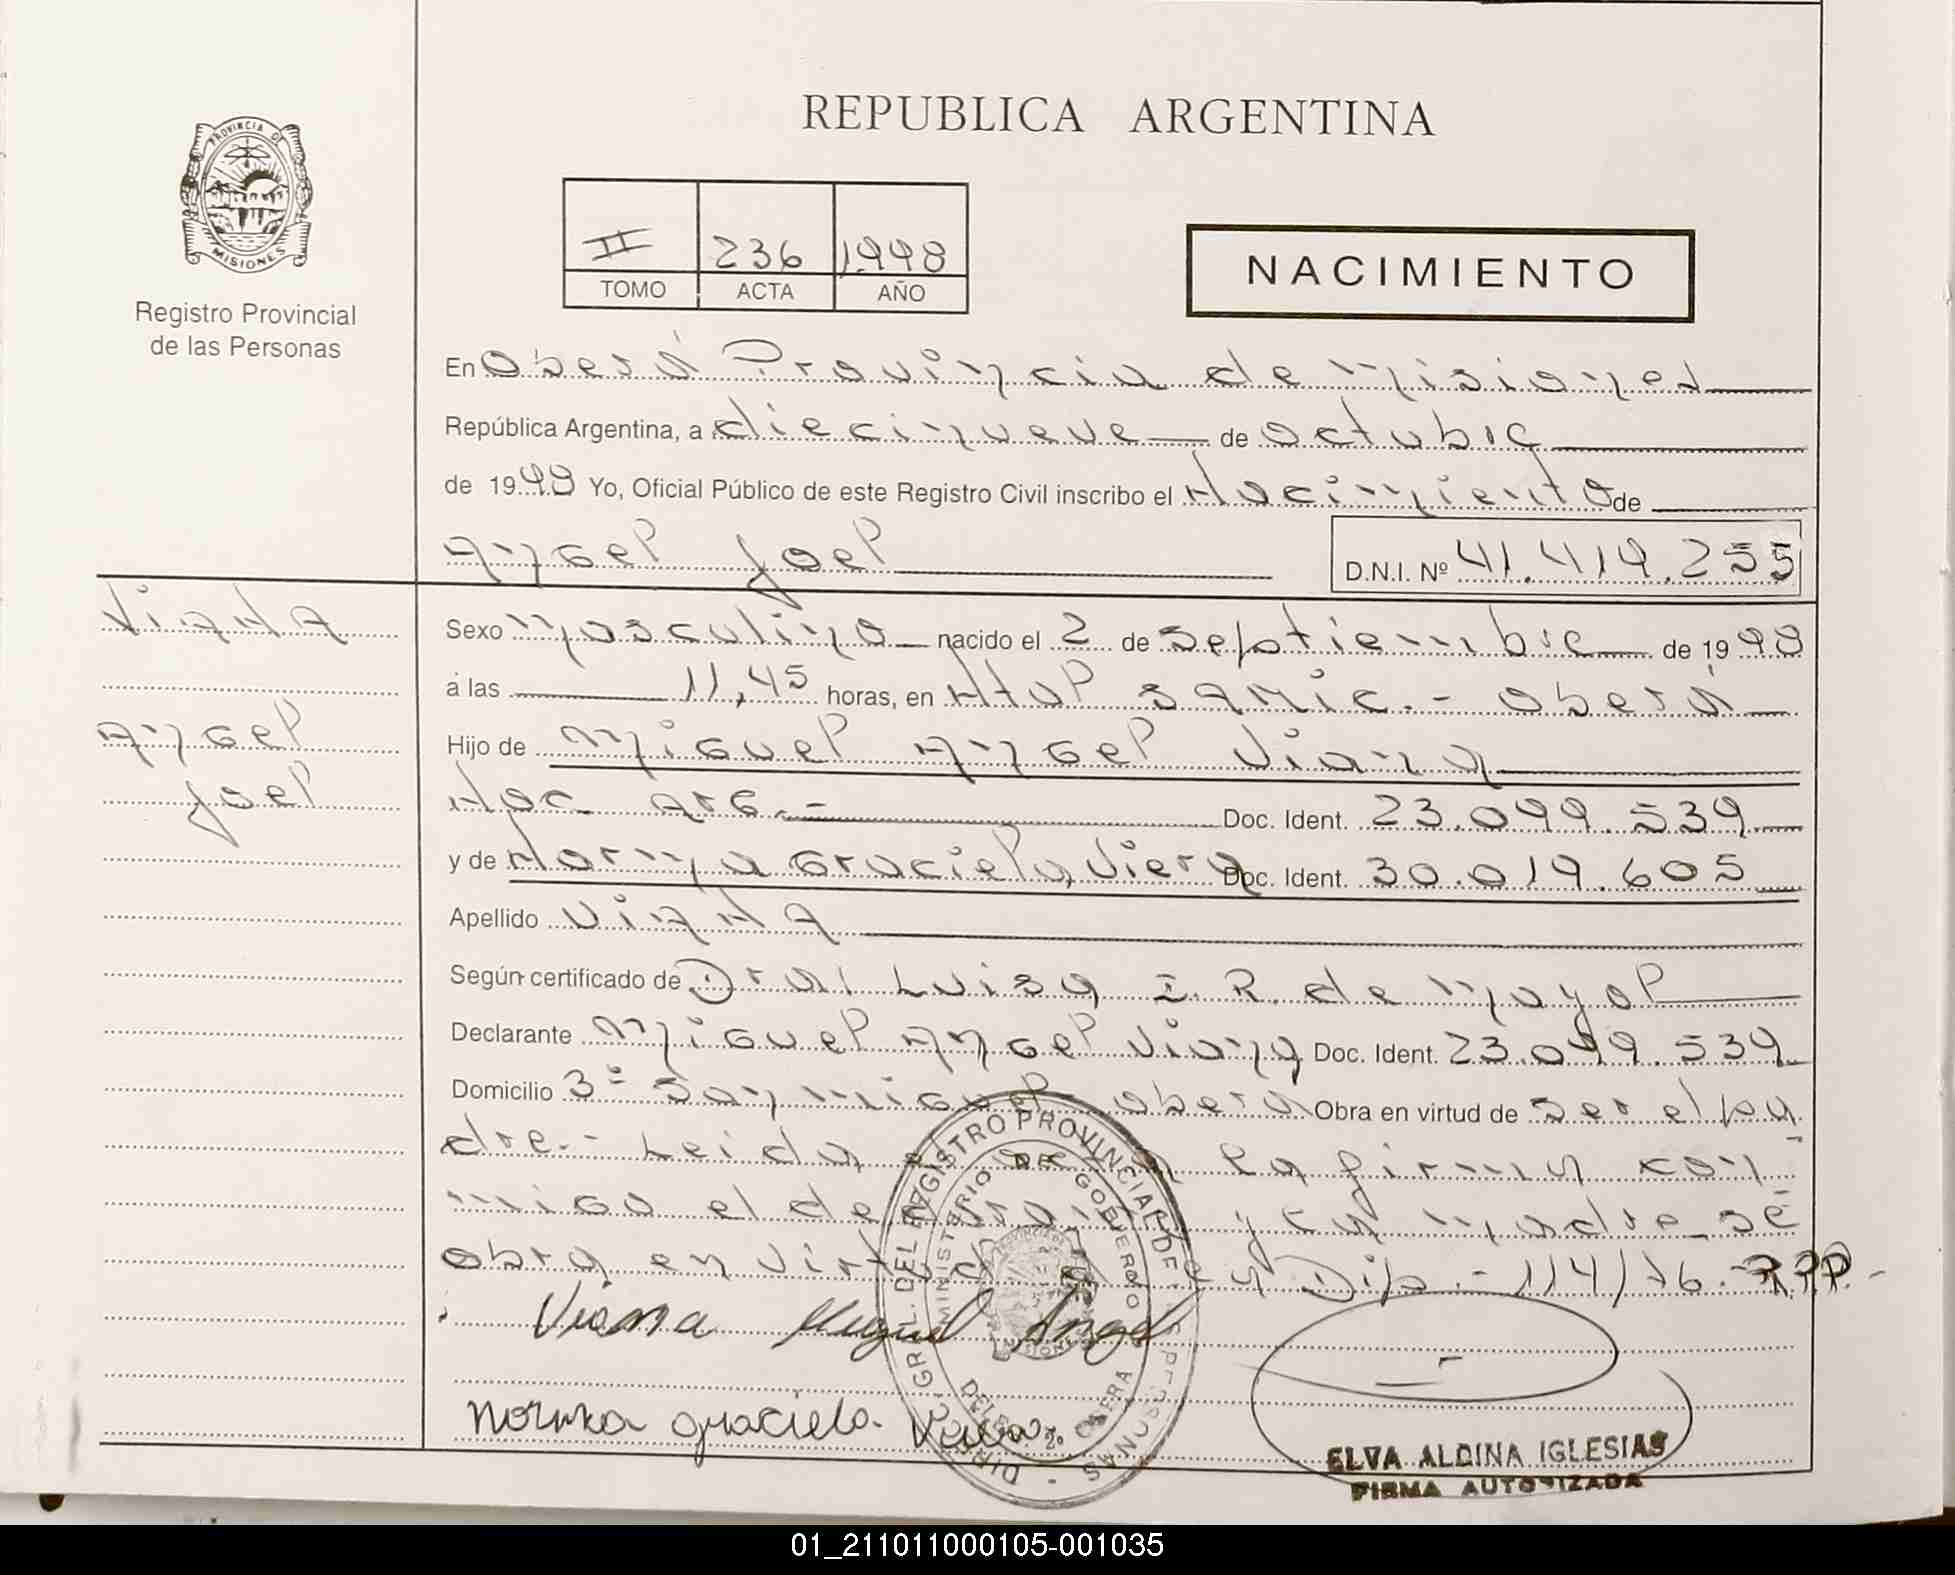 REPUBLICA ARGENTINA
PROVINCIA DE MISIONES
Registro Provincial
de las Personas
II 236 1998
TOMO ACTA AÑO
NACIMIENTO
En Oberá Provincia de Misiones
República Argentina, a diecinueve de octubre
de 1998 Yo, Oficial Público de este Registro Civil inscribo el Nacimiento de
Angel Joel
D.N.I. Nº 41.419.255
VIANA
Angel
Joel
Sexo Masculino nacido el 2 de Septiembre de 1998
a las 11,45 horas, en Ntup SAMIC.- Oberá
Hijo de Miguel Angel Viana
Nac. Arg.- Doc. Ident. 23.099.539
y de Norma Graciela Viera Doc. Ident. 30.019.605
Apellido VIANA
Según certificado de Dra. Luisa I. R. de Mayol
Declarante Miguel Angel Viana Doc. Ident. 23.099.539
Domicilio 3= San Miguel Oberá Obra en virtud de ser el pa
dre.- Leida el la firman con
migo el y la madre se
obra en virtud Disp.- 114/76.- RPP.-
Viana Miguel Angel
Norma graciela. Viera
DIR. GRAL. DEL REGISTRO PROVINCIAL DE PERSONAS
MINISTERIO DE GOBIERNO
ELVA ALDINA IGLESIAS
FIRMA AUTORIZADA
01_211011000105-001035